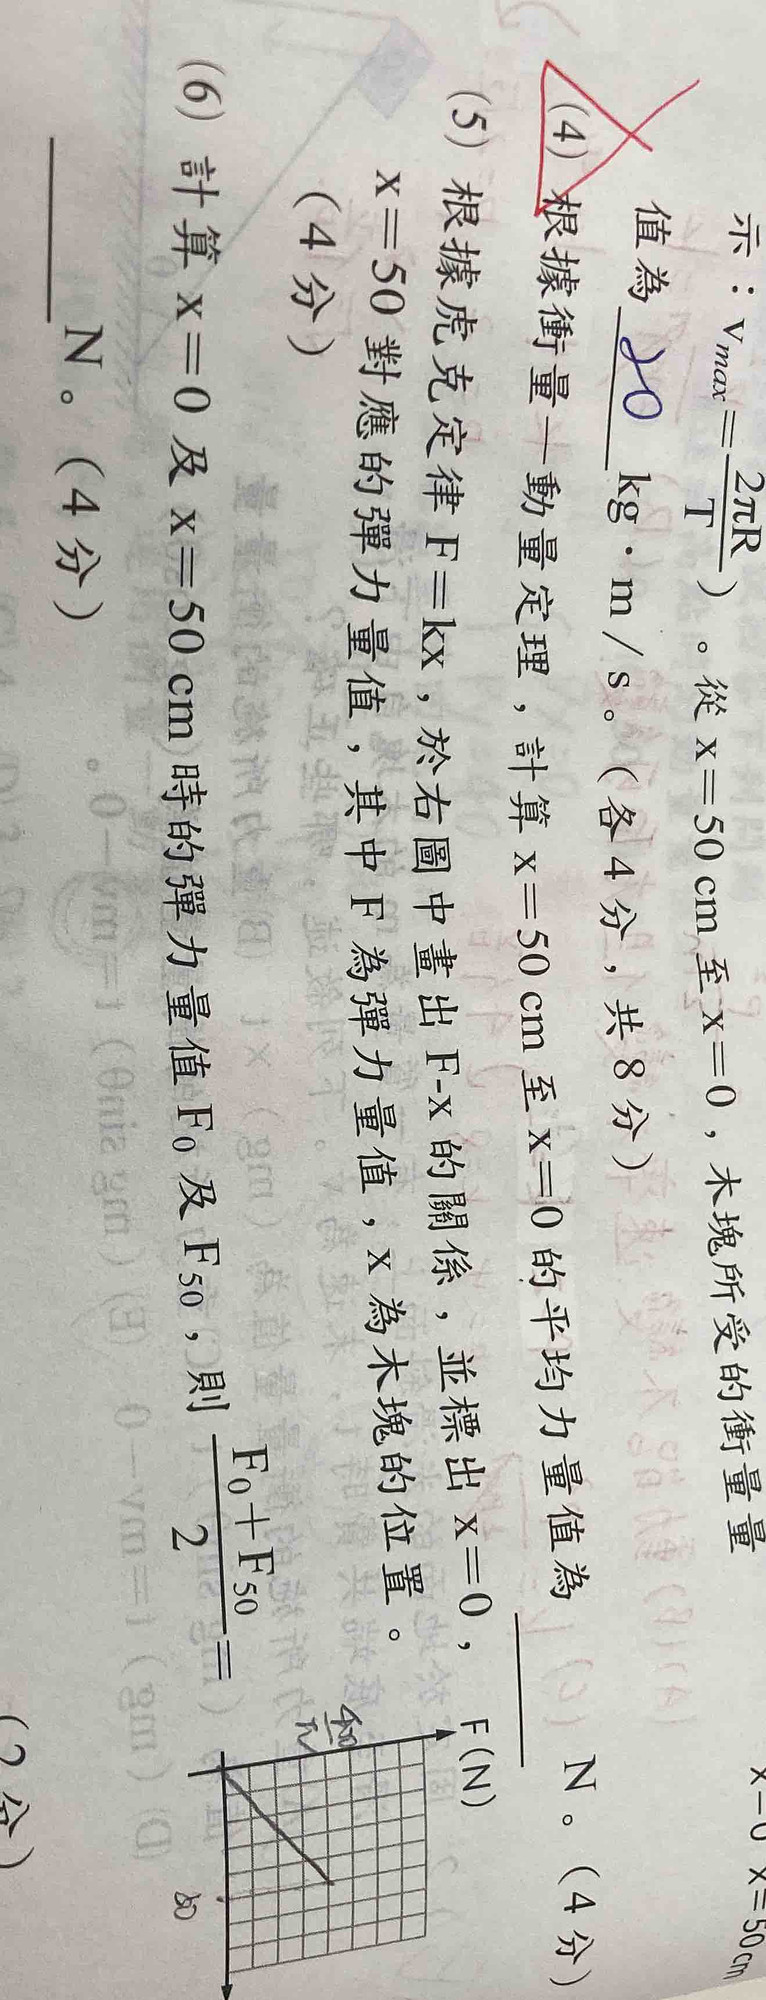 示：vmax＝2πR/T）。從 x＝50 cm 至 x＝0，木塊所受的衝量量
值為 20 kg·m／s。（各 4 分，共 8 分）
(4) 根據衝量－動量定理，計算 x＝50 cm 至 x＝0 的平均力量值為
N。（4 分）
(5) 根據虎克定律 F＝kx，於右圖中畫出 F-x 的關係，並標出 x＝0，
x＝50 對應的彈力量值，其中 F 為彈力量值，x 為木塊的位置。
（4 分）
(6) 計算 x＝0 及 x＝50 cm 時的彈力量值 F0 及 F50，則 F0＋F50/2＝
N。（4 分）
x＝0 x＝50 cm
F(N)
50
（2 分）